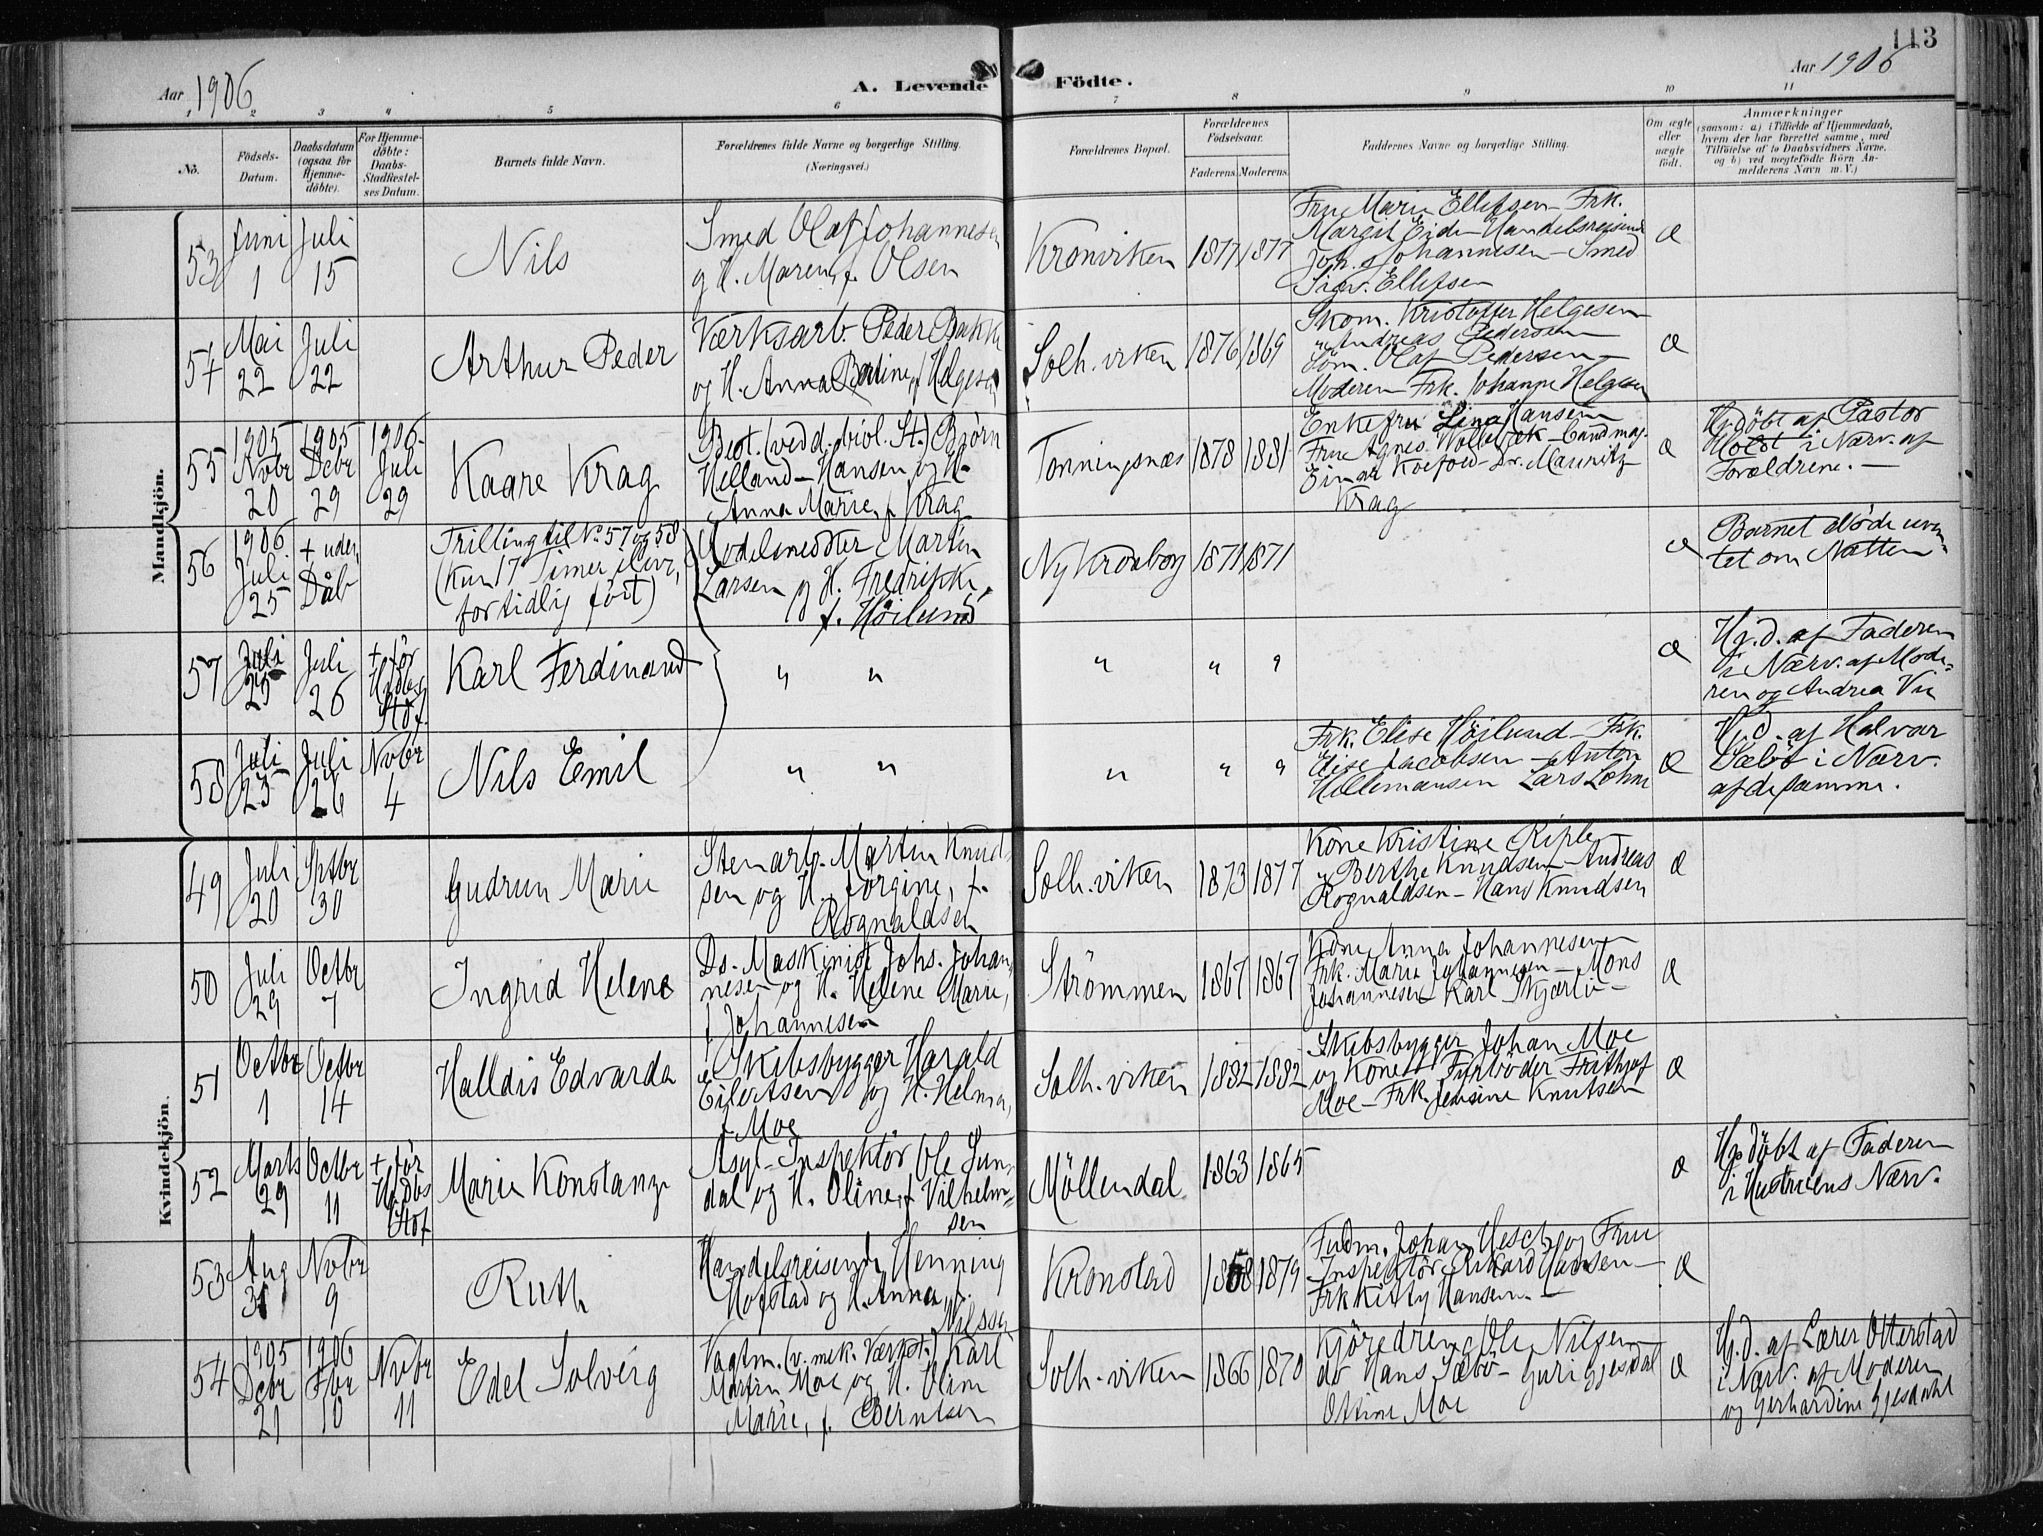 113
Aar 1906
A. Levende Födte.
Aar 1906
1 2 3 4 5 6 7 8 9 10 11
No.
Födsels-
Datum.
Daabsdatum
(ogsaa for
Hjemme-
döbte).
For Hjemme-
döbte:
Daabs-
Stadfæstel-
ses Datum.
Barnets fulde Navn.
Forældrenes fulde Navne og borgerlige Stilling.
(Næringsvei.)
Forældrenes Bopæl.
Forældrenes
Födselsaar.
Faderens.
Moderens.
Faddernes Navne og borgerlige Stilling.
Om ægte
eller
uægte
födt.
Anmærkninger
(saasom: a) i Tilfælde af Hjemmedaab,
hvem der har forrettet samme, med
Tilföielse af to Daabsvidners Navne,
og b) ved uægtefödte Börn An-
melderens Navn m. V.)
Mandkjön.
53
Juni
1
Juli
15
Nils
Smed Olaf Johannesen
og H. Maren, f. Olsen
Kronviken
1877
1877
Fru Marie Ellefsen - Frk.
Margit Eide - Handelsreisende
Joh. Johannesen - Smed
Sigv. Ellefsen
Æ
54
Mai
22
Juli
22
Arthur Peder
Værksarb. Peder Bakke
og H. Anna Bertine, f. Helgesen
Solh.viken
1876
1869
Skom. Kristoffer Helgesen
" Andreas Pedersen
Söm. Olaf Pedersen -
Moderen - Frk. Johanne Helgesen
Æ
55
1905
Novbr
20
1905
Decbr
29
1906
Juli
29
Kaare Krag
Best. (ved d. biol. St.) Björn
Helland-Hansen og H.
Anna Marie, f. Krag
Tonningsnæs
1878
1881
Enkefru Lina Hansen
Fru Agnes Wollebæk - Cand mag.
Einar Koefoed - Dr. Mauritz
Krag
Æ
Hj.döbt af Pastor
Holst i Nærv. af
Forældrene. -
56
1906
Juli
25
+ uden
Dåb
Trilling til No 57 og 58
(kun 17 Timer i live,
for tidlig født)
Modelsnedker Martin
Larsen og H. Fredrikke,
f. Höilund
Ny Kronborg
1871
1871
Æ
Barnet döde uven-
tet om Natten
57
Juli
25
Juli
26
+ för
Hjdbs
Stdf.
Karl Ferdinand
" "
"
" "
Æ
Hj.d. af Faderen
i Nærv. af Mode-
ren og Andrea Vie
58
Juli
25
Juli
26
Novbr
4
Nils Emil
" "
"
" "
Frk. Elise Höilund - Frk.
Elise Jacobsen - Anton
Hellemansen Lars Lohne
Æ
H.d. af Halvar
Sæbö i Nærv.
af de samme.
Kvindekjön.
49
Juli
20
Septbr
30
Gudrun Marie
Stenarb. Martin Knud-
sen og H. Jörgine, f.
Rognaldsen
Solh.viken
1873
1877
Kone Kristine Riple
" Berthe Knudsen - Andreas
Rognaldsen - Hans Knudsen
Æ
50
Juli
29
Octbr
7
Ingrid Helene
Ds. Maskinist Johs. Johan-
nesen og H. Helene Marie,
f. Johannesen
Strömmen
1867
1867
Kone Anna Johannesen
Frk. Marie Johannesen - Mons
Johannesen - Karl Skjærlö -
Æ
51
Octbr
1
Octbr
14
Halldis Edvarda
Skibsbygger Harald
Eilertsen og H. Helma,
f. Moe
Solh.viken
1882
1882
Skibsbygger Johan Moe
og Kone - Fyrböder Frithjof
Moe - Frk. Jensine Knutsen
Æ
52
Marts
29
Octbr
11
+ för
Hjdbs
Stdf
Marie Konstanze
Asyl-Inspektör Ole Sun-
dal og H. Oline, f. Vilhelm-
sen
Möllendal
1863
1865
Æ
Hjdöbt af Faderen
i Hustruens Nærv.
53
Aug
31
Novbr
9
Ruth
Handelsreisende Henning
Hofstad og H. Anna, f.
Nilssen
Kronstad
1868
1879
Fuldm. Johan Hesch og Frue
Inspektör Rikard Hansen -
Frk Kitty Hansen. -
Æ
54
1905
Decbr
21
1906
Fbr
10
Novbr
11
Edel Solveig
Vagtm. (v. mek. Værkst.) Karl
Martin Moe og H. Oline
Marie, f. Berntsen
Solh.viken
1866
1870
Kjöredreng Ole Nilsen
do Hans Sæbö - Guri Gjesdal
Ostine Moe
Æ
Hj.d. af Lærer Otterstad
i Nærv. af Moderen
og Gerhardine Gjesdahl